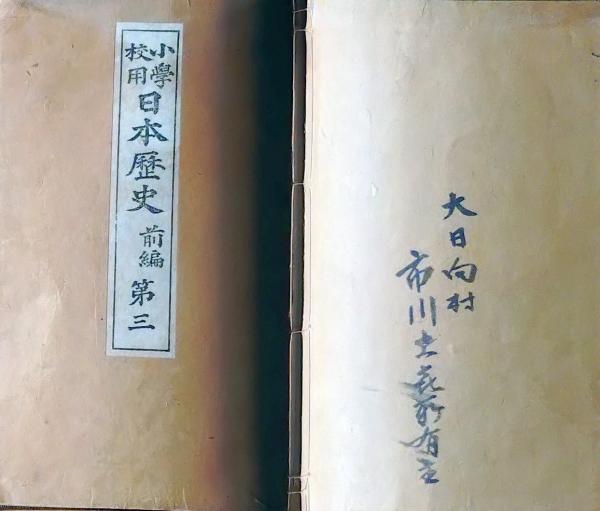 小學校用日本歷史前編第三
大日向村
市川
所有主